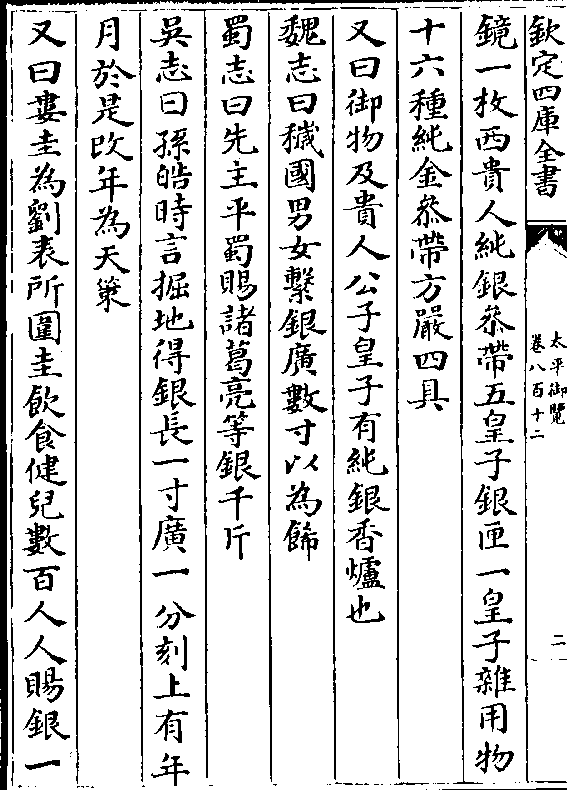 欽定四庫全書
太平御覽
卷八百十二
二
鏡一枚西貴人純銀叅帶五皇子銀匣一皇子雜用物
十六種純金叅帶方嚴四具
又曰御物及貴人公子皇子有純銀香爐也
魏志曰穢國男女繫銀廣數寸以為餙
蜀志曰先主平蜀賜諸葛亮等銀千斤
吳志曰孫皓時言掘地得銀長一寸廣一分刻上有年
月於是改年為天䇿
又曰婁圭為劉表所圍圭飲食健兒數百人人賜銀一